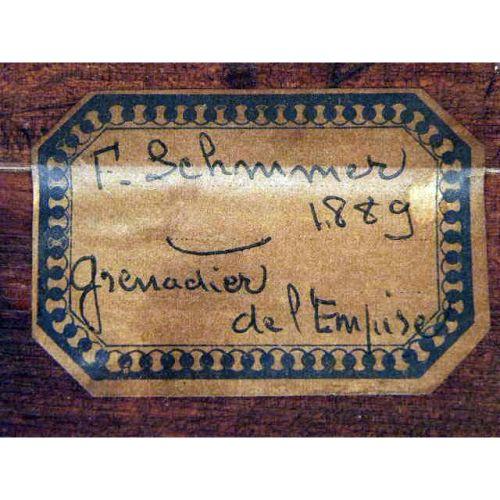 F. Schmmer
1.889
Grenadier
de l'Empire